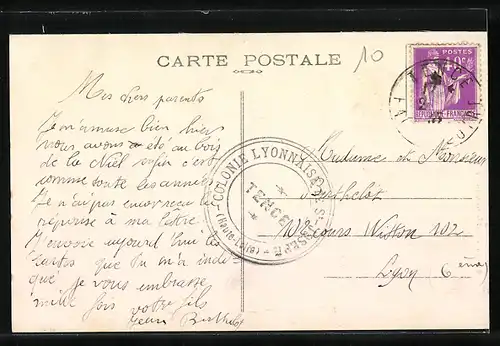 CARTE POSTALE
10
40c
REPUBLIQUE FRANÇAISE
Mes chers parents
Je m'amuse bien hier
nous avons été au bois
de la Niel
comme toute les années
Je n'ai pas encore reçu la
réponse à ma lettre.
J'envoie aujourd'hui les
cartes que tu m'a indi-
qué, je vous embrasse
mille fois votre fils
Jean Berthelot
COLONIE LYONNAISE DE ST
(Haute-Loire)
TENCE
Madame et Monsieur
Berthelot
102 cours Vitton 102
Lyon (6ème)